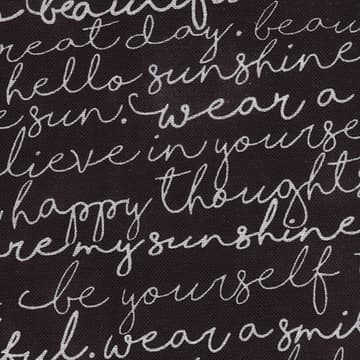 beautiful
reat day. beau
hello sunshine
e sun. wear a
lieve in yourse
happy thought
re my sunshine
be yourself
ful. wear a smi